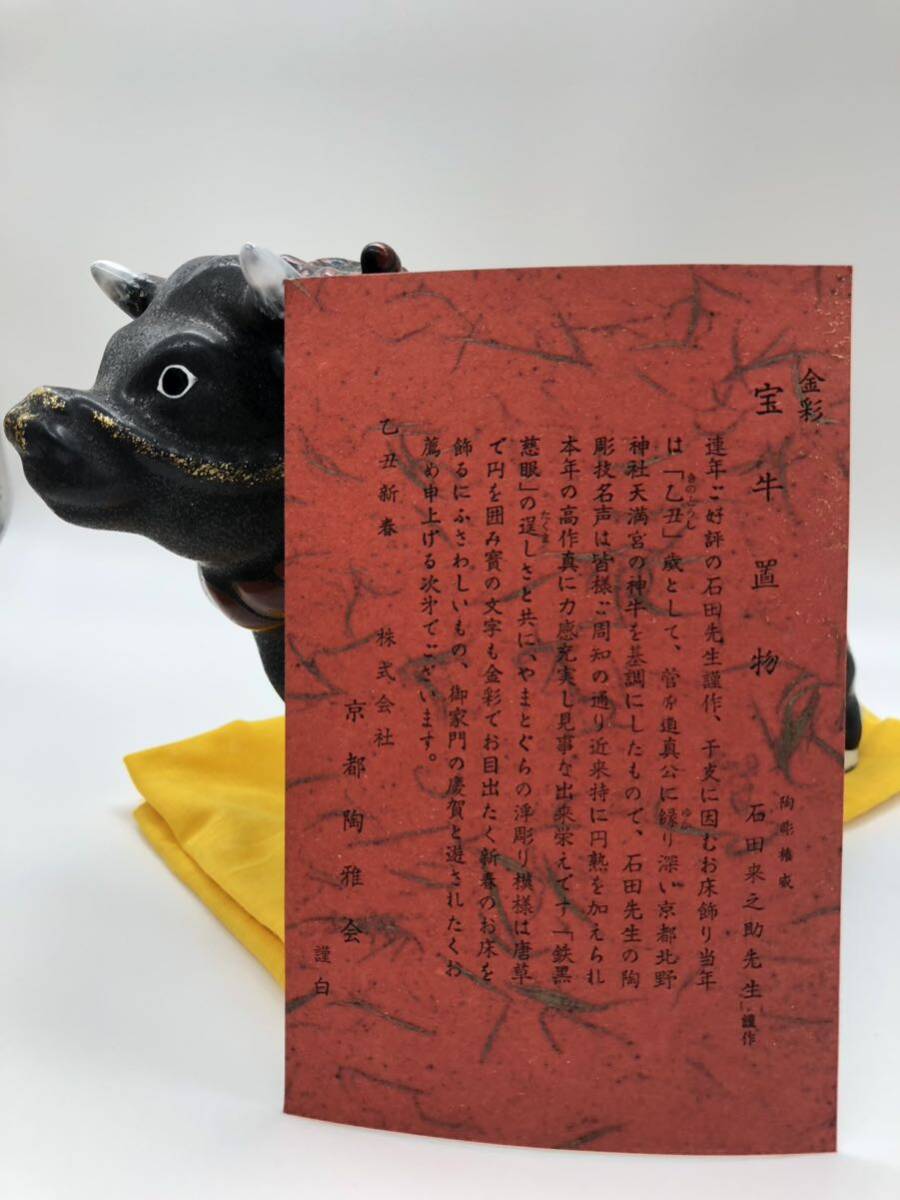 金彩
宝牛置物
陶彫権威
石田来之助先生謹作
連年ご好評の石田先生謹作、干支に因むお床飾り当年
は「乙丑」歳として、菅原道真公に縁り深い京都北野
きのとうし
ゆか
神社天満宮の神牛を基調にしたもので、石田先生の陶
彫技名声は皆様ご周知の通り近来特に円熟を加えられ
本年の高作真に力感充実し見事な出来栄えです「鉄黒
慈眼」の逞しさと共に、やまとぐらの浮彫り模様は唐草
たくま
で円を囲み寳の文字も金彩でお目出たく新春のお床を
飾るにふさわしいもの、御家門の慶賀と遊されたくお
薦め申上げる次第でございます。
乙丑新春
株式会社
京都陶雅会
謹白